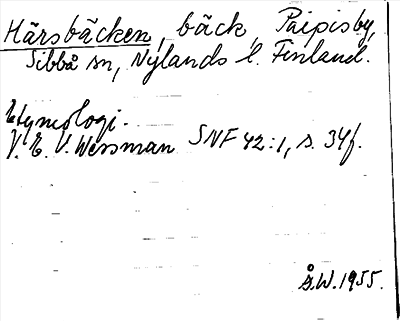 Härsbäcken, bäck, Paipisby,
Sibbå sn, Nylands l. Finland.
Etymologi.
V. E. V. Wessman SNF 42:1, s. 34f.
Å.W.1955.